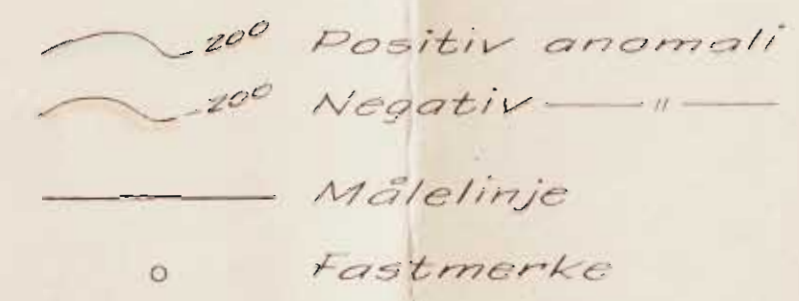 200 Positiv anomali
-200 Negativ — " —
Målelinje
Fastmerke